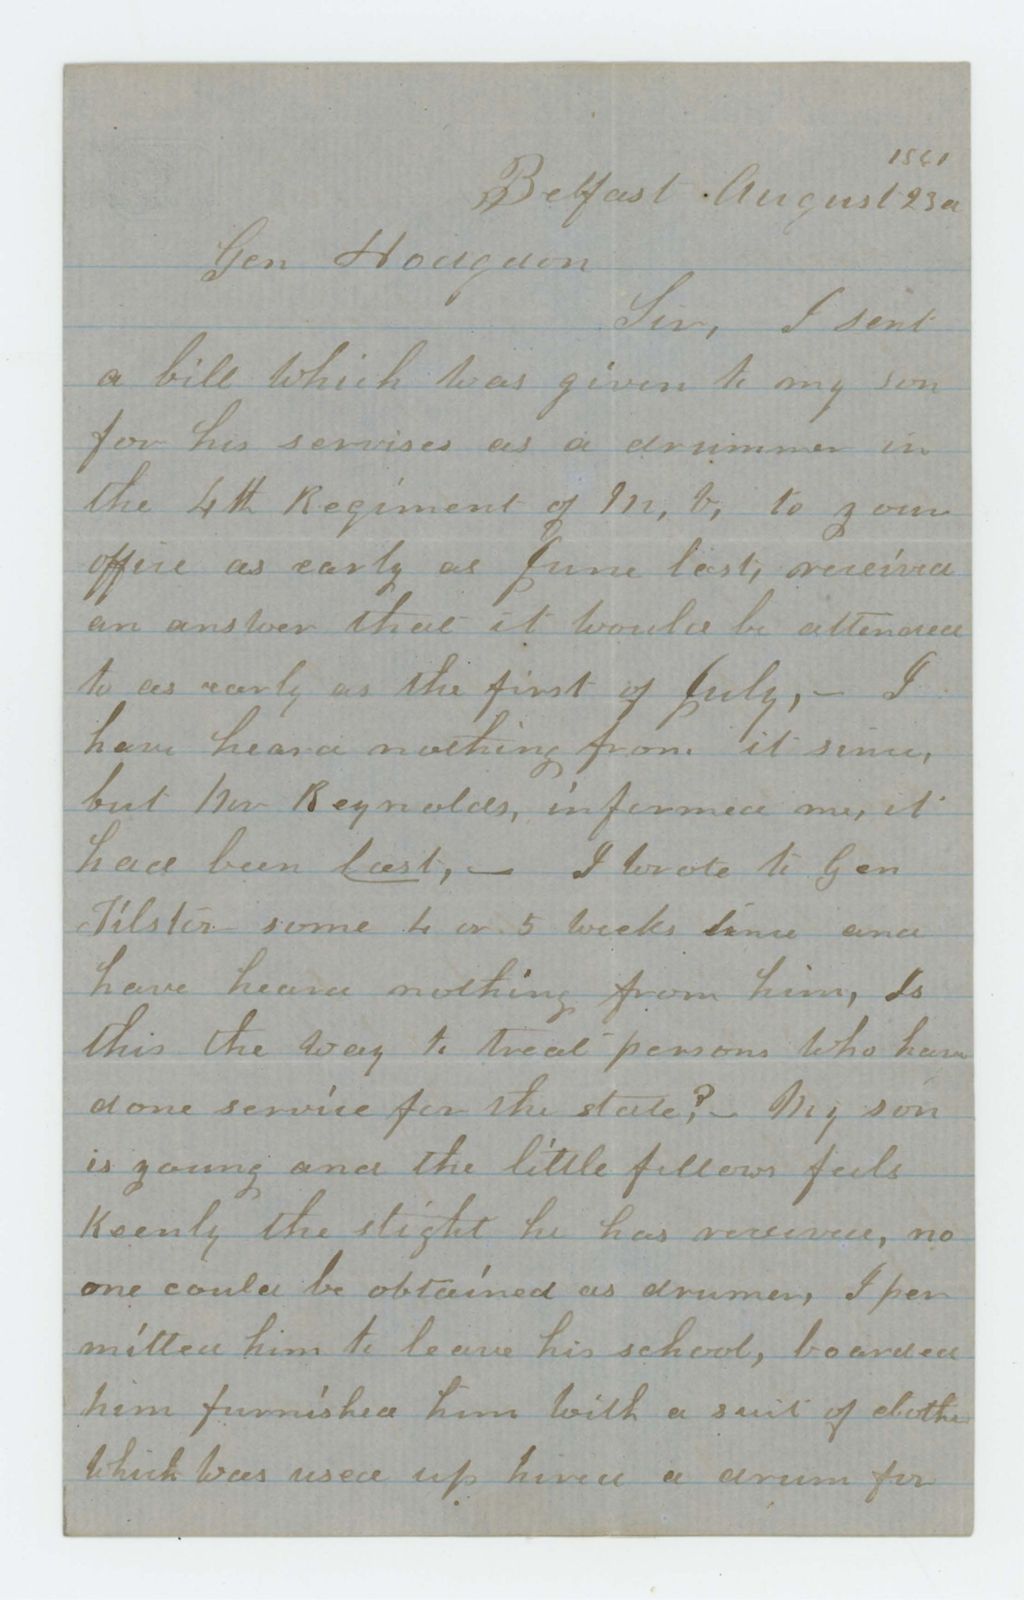 1861
Belfast August 23d
Gen Hodgdon
Sir, I sent
a bill which was given to my son
for his servises as a drummer in
the 4th Regiment of M, V, to your
office as early as June last, received
an answer that it would be attended
to as early as the first of July, – I
have heard nothing from it since,
but Mr Reynolds, informed me, it
had been lost, – I wrote to Gen
Tilster some 4 or 5 weeks since and
have heard nothing from him, Is
this the way to treat persons who have
done service for the state? – My son
is young and the little fellows feels
Keenly the slight he has received, no
one could be obtained as drumer, I per
mitted him to leave his school, boarded
him furnished him with a suit of clothes
which was used up hired a drum for